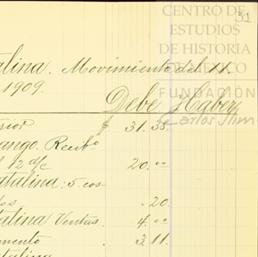 CENTRO DE
ESTUDIOS
DE HISTORIA
DE MÉXICO
FUNDACIÓN
Carlos Slim
31
talina. Movimiento del 11.
1909.
Debe Haber
$ 31.38
ango. Recibo
l 12 d/c 20.00
atalina: 5 cos-
.20
talina Ventas 4.00
mento 3.11